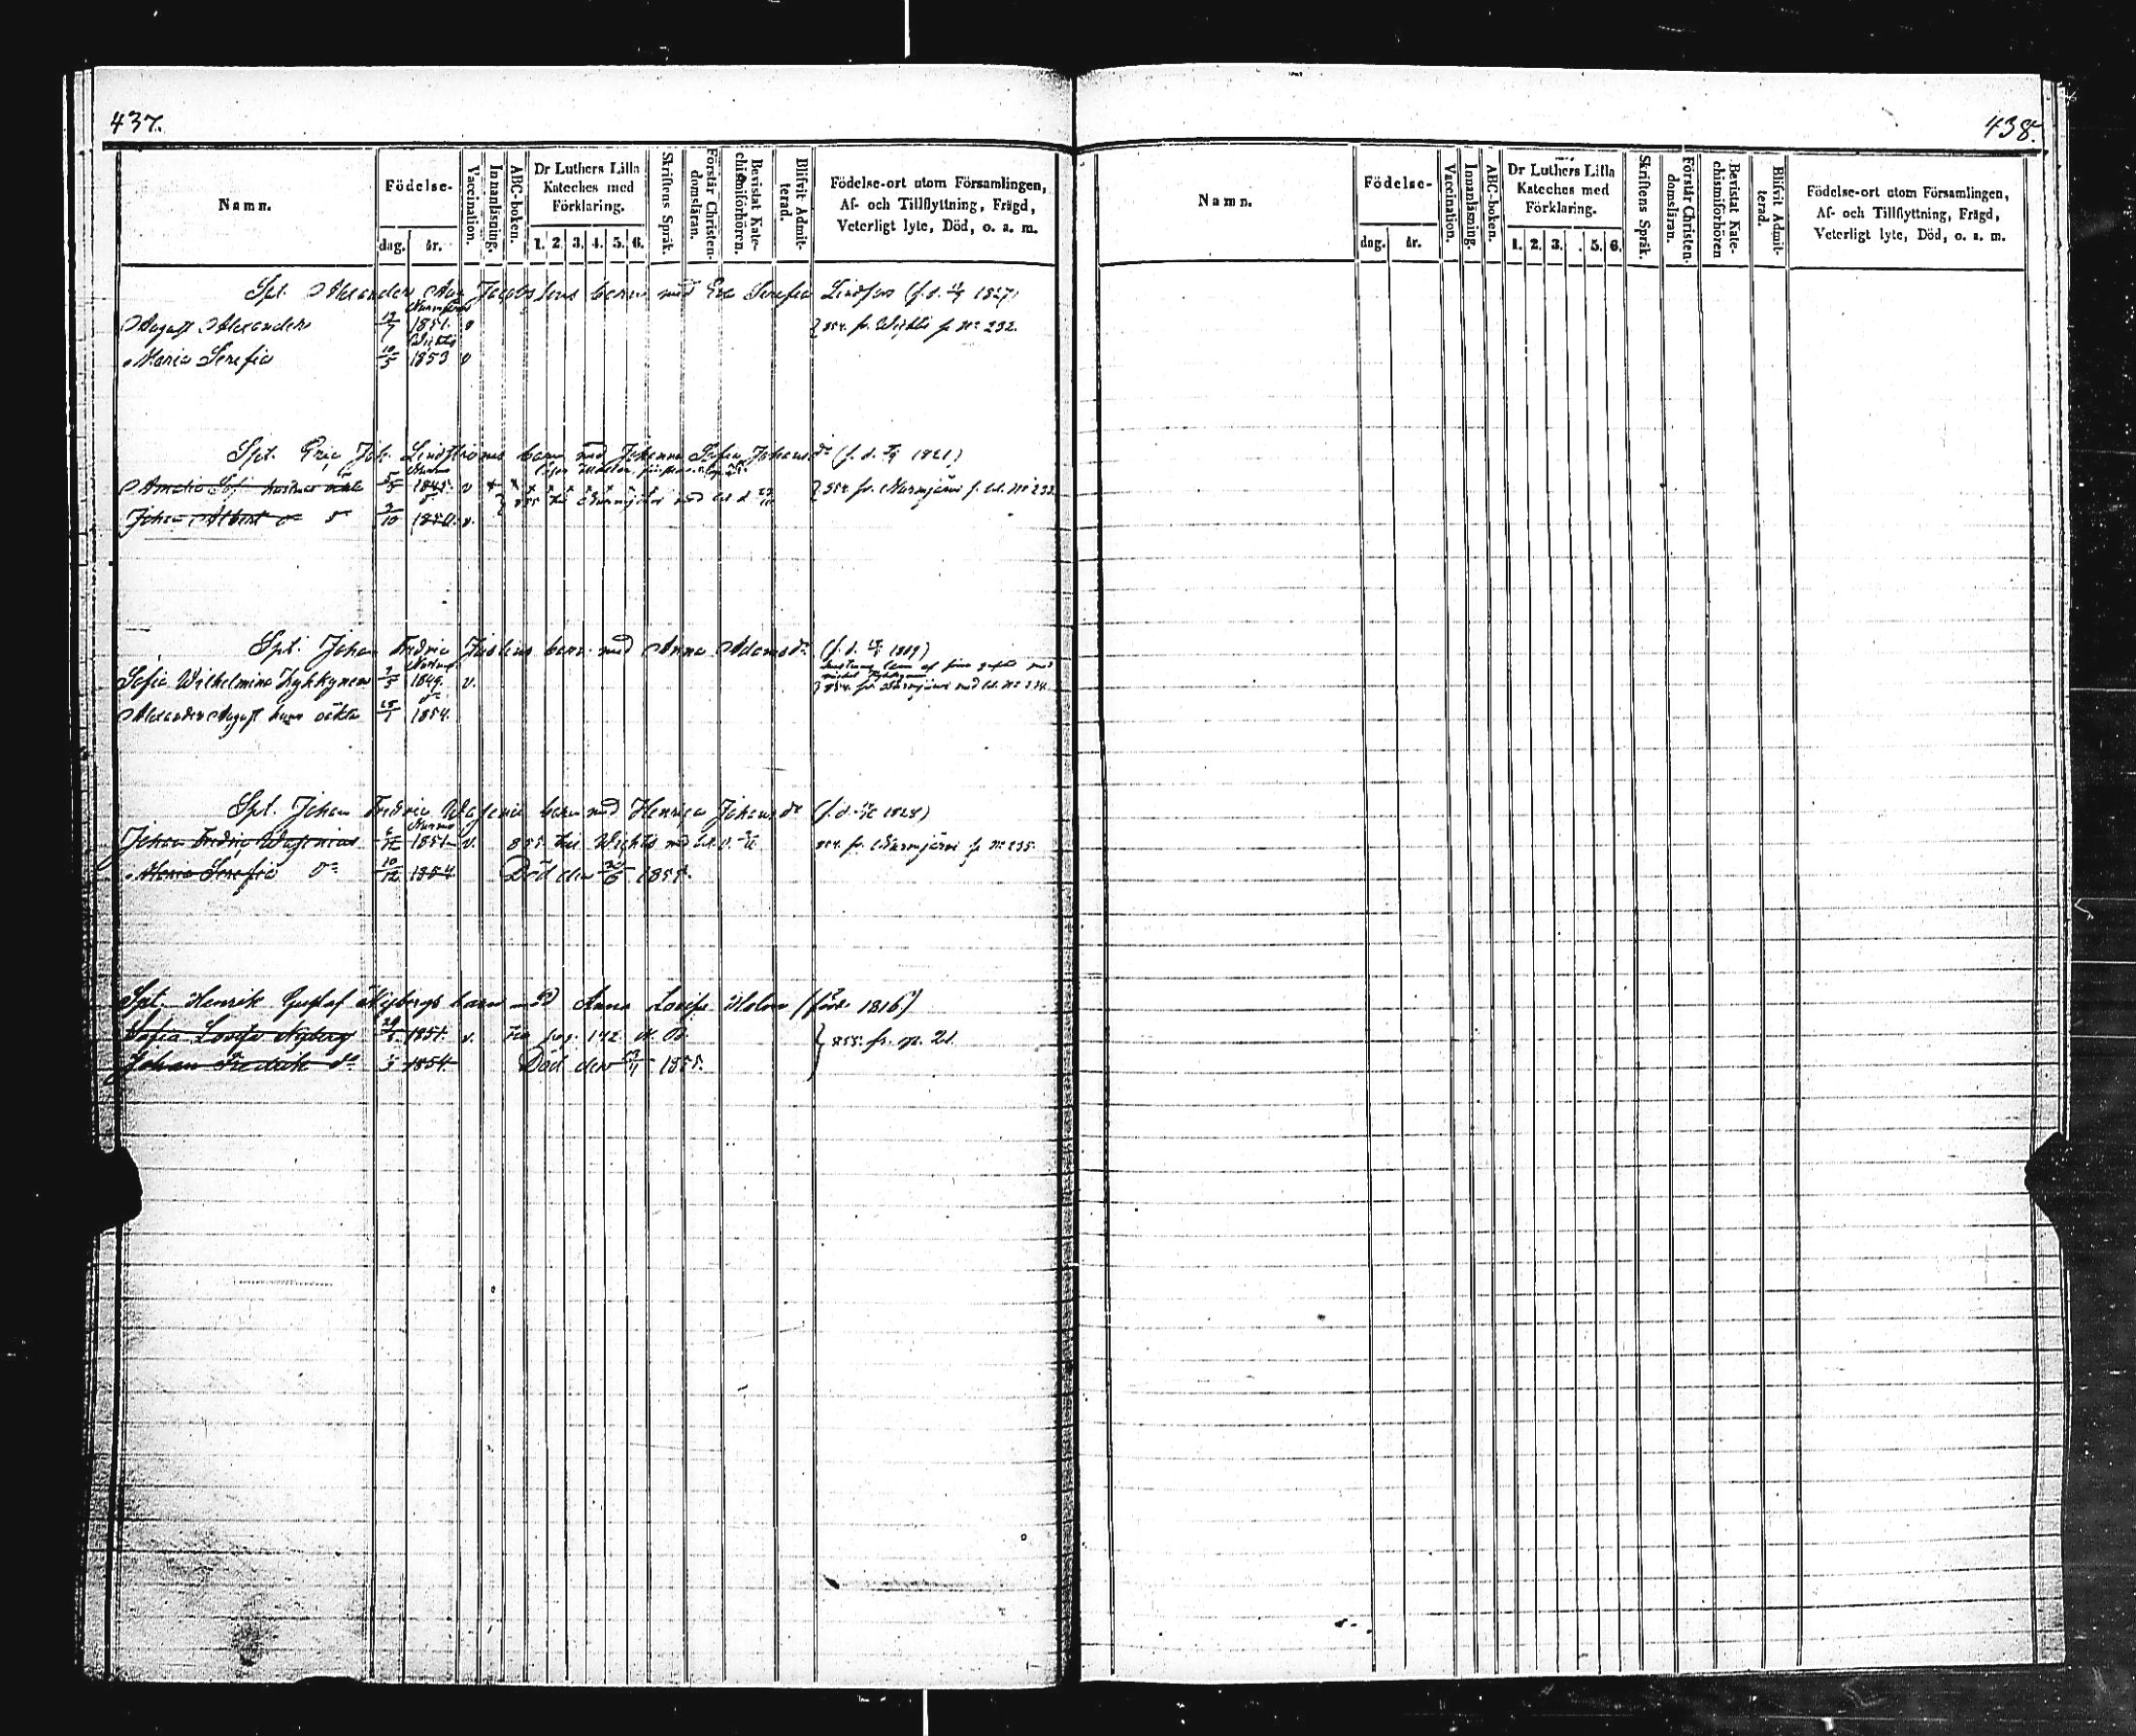 437.
Namn.
Födelse-
dag.
år.
Vaccination.
Innanläsning.
ABC-boken.
Dr Luthers Lilla
Kateches med
Förklaring.
1. 2. 3. 4. 5. 6.
Skriftens Språk.
Förstår Christen-
domsläran.
Bevistat Kate-
chismiförhören.
Blifvit Admit-
terad.
Födelse-ort utom Församlingen,
Af- och Tillflyttning, Frägd,
Veterligt lyte, Död, o. a. m.
Spt. Alexander Jacobssons barn med Eva Serefia Lindfors (f. d. 1827)
August Alexander 1851. v 854. fr. Wichtis p. No 232.
Wichtis
Maria Serefia 10/5 1853 v
Spt. Eric Joh. Lindströms barn med Johanna Sofia Johansdr (f. d. 1821)
Amalia Sofi 1845. v 854. fr. Nurmijärvi p. bet. No 233.
855 till Nurmijärvi med bet. d.
Johan Albert dº 2/10 1850. v.
Spt. Johan Fredric Juslins barn med Anna Adamsdr (f. d. 1819)
Sofia Wilhelmina Lyhkynen 3/5 1849. v.
854. fr. Nurmijärvi med bet. No 234.
Alexander August hans äkta 1854.
Spt. Johan Fredric Wasenii barn med Henrica Johansdr (f. d. 1828)
Johan Fredric Wasenius 6/12 1851 v. 855 till Wichtis med bet. 854. fr. Nurmijärvi p. No 235.
Maria Serefia dº 10/12 1854 Död den 1855.
Spt. Henrik Gustaf Nybergs barn med Anna Lovisa Holm (född 1816)
Sofia Lovisa Nyberg 1851. v. Fin pag. 142. 855. fr. p. 21.
Johan Fredrik dº 1854 Död den 1855.
438.
Namn.
Födelse-
dag.
år.
Vaccination.
Innanläsning.
ABC-boken.
Dr Luthers Lilla
Kateches med
Förklaring.
1. 2. 3. . 5. 6.
Skriftens Språk.
Förstår Christen-
domsläran.
Bevistat Kate-
chismiförhören
Blifvit Admit-
terad.
Födelse-ort utom Församlingen,
Af- och Tillflyttning, Frägd,
Veterligt lyte, Död, o. a. m.